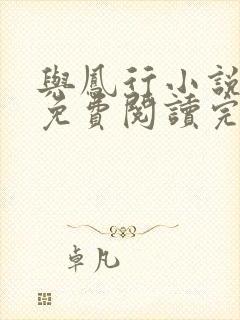 與鳳行小說
免費閱讀完
卓凡